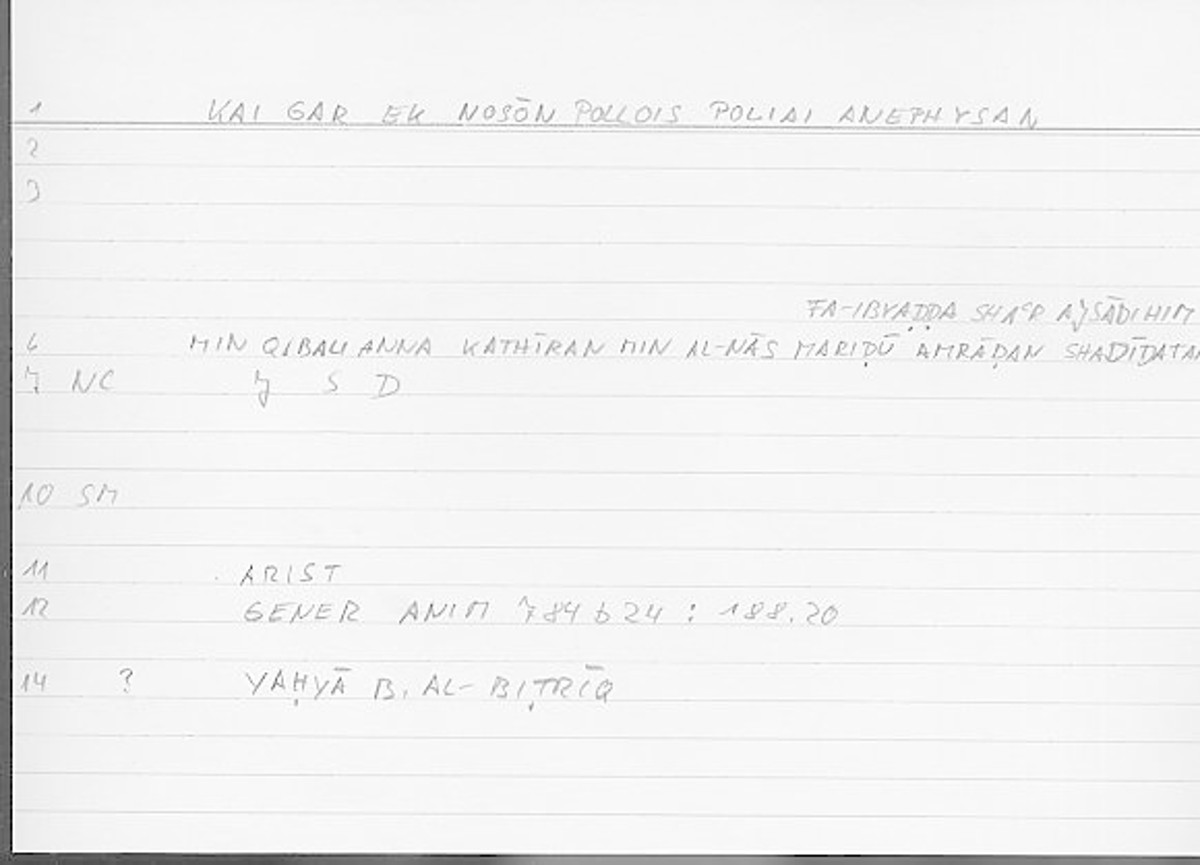 1 KAI GAR EK NOSŌN POLLOIS POLIAI ANEPHYSAN
2
3
FA-IBYAḌḌA SHAʿR AJSĀDIHIM
6 MIN QIBALI ANNA KATHĪRAN MIN AL-NĀS MARIḌŪ AMRĀḌAN SHADĪDATAN
7 NC J S D
10 SM
11 ARIST
12 GENER ANIM 784 b 24 : 188.20
14 ? YAḤYĀ B. AL-BIṬRĪQ